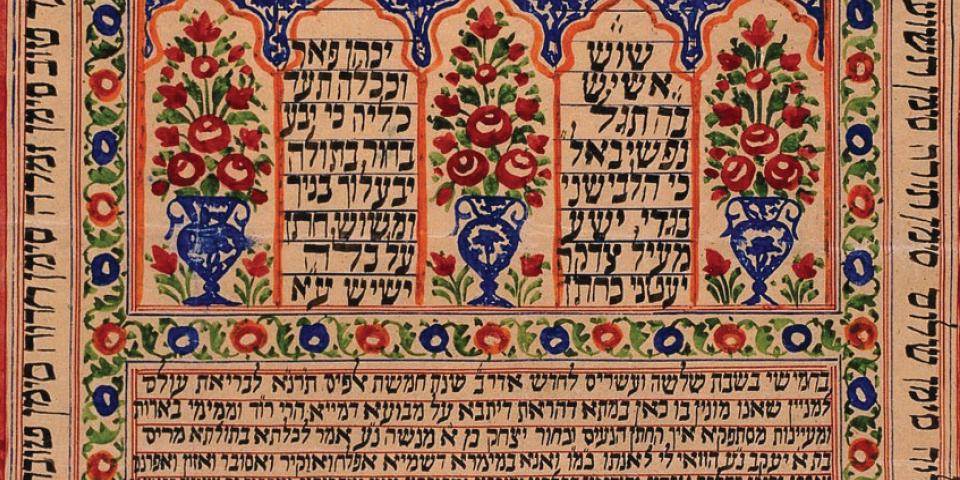 שוש
אשיש
בה תגל
נפשי באל
כי הלבישני
בגדי ישע
מעיל צדקה
יעטני כחתן
יכהן פאר
וככלה תע
כליה כי יבע
בחור בתולה
יבעלוך בניך
ומשוש חתן
על כלה
ישיש ע״א
בחמישי בשבת שלשה ועשרים לחדש אדר ב׳ שנת חמשת אלפים תרנ״א לבריאת עולם
למניין שאנו מונין בו כאן במתא דהראת דיתבא על מבועא דמייא הרי רוד וממימי בארות
ומעיינות מסתפקא איך החתן הנעים ובחור יצחק בן א מנשה נ״ע אמר לכלתא בתולתא מרים
בת א יעקב נ״ע הוואי לי לאנתו ואנא במימרא דשמיא אפלח ואוקיר ואסובר ואזון
טוב סימן זמרה סימן חדוה סימן
סימן סימן שילוש סימן